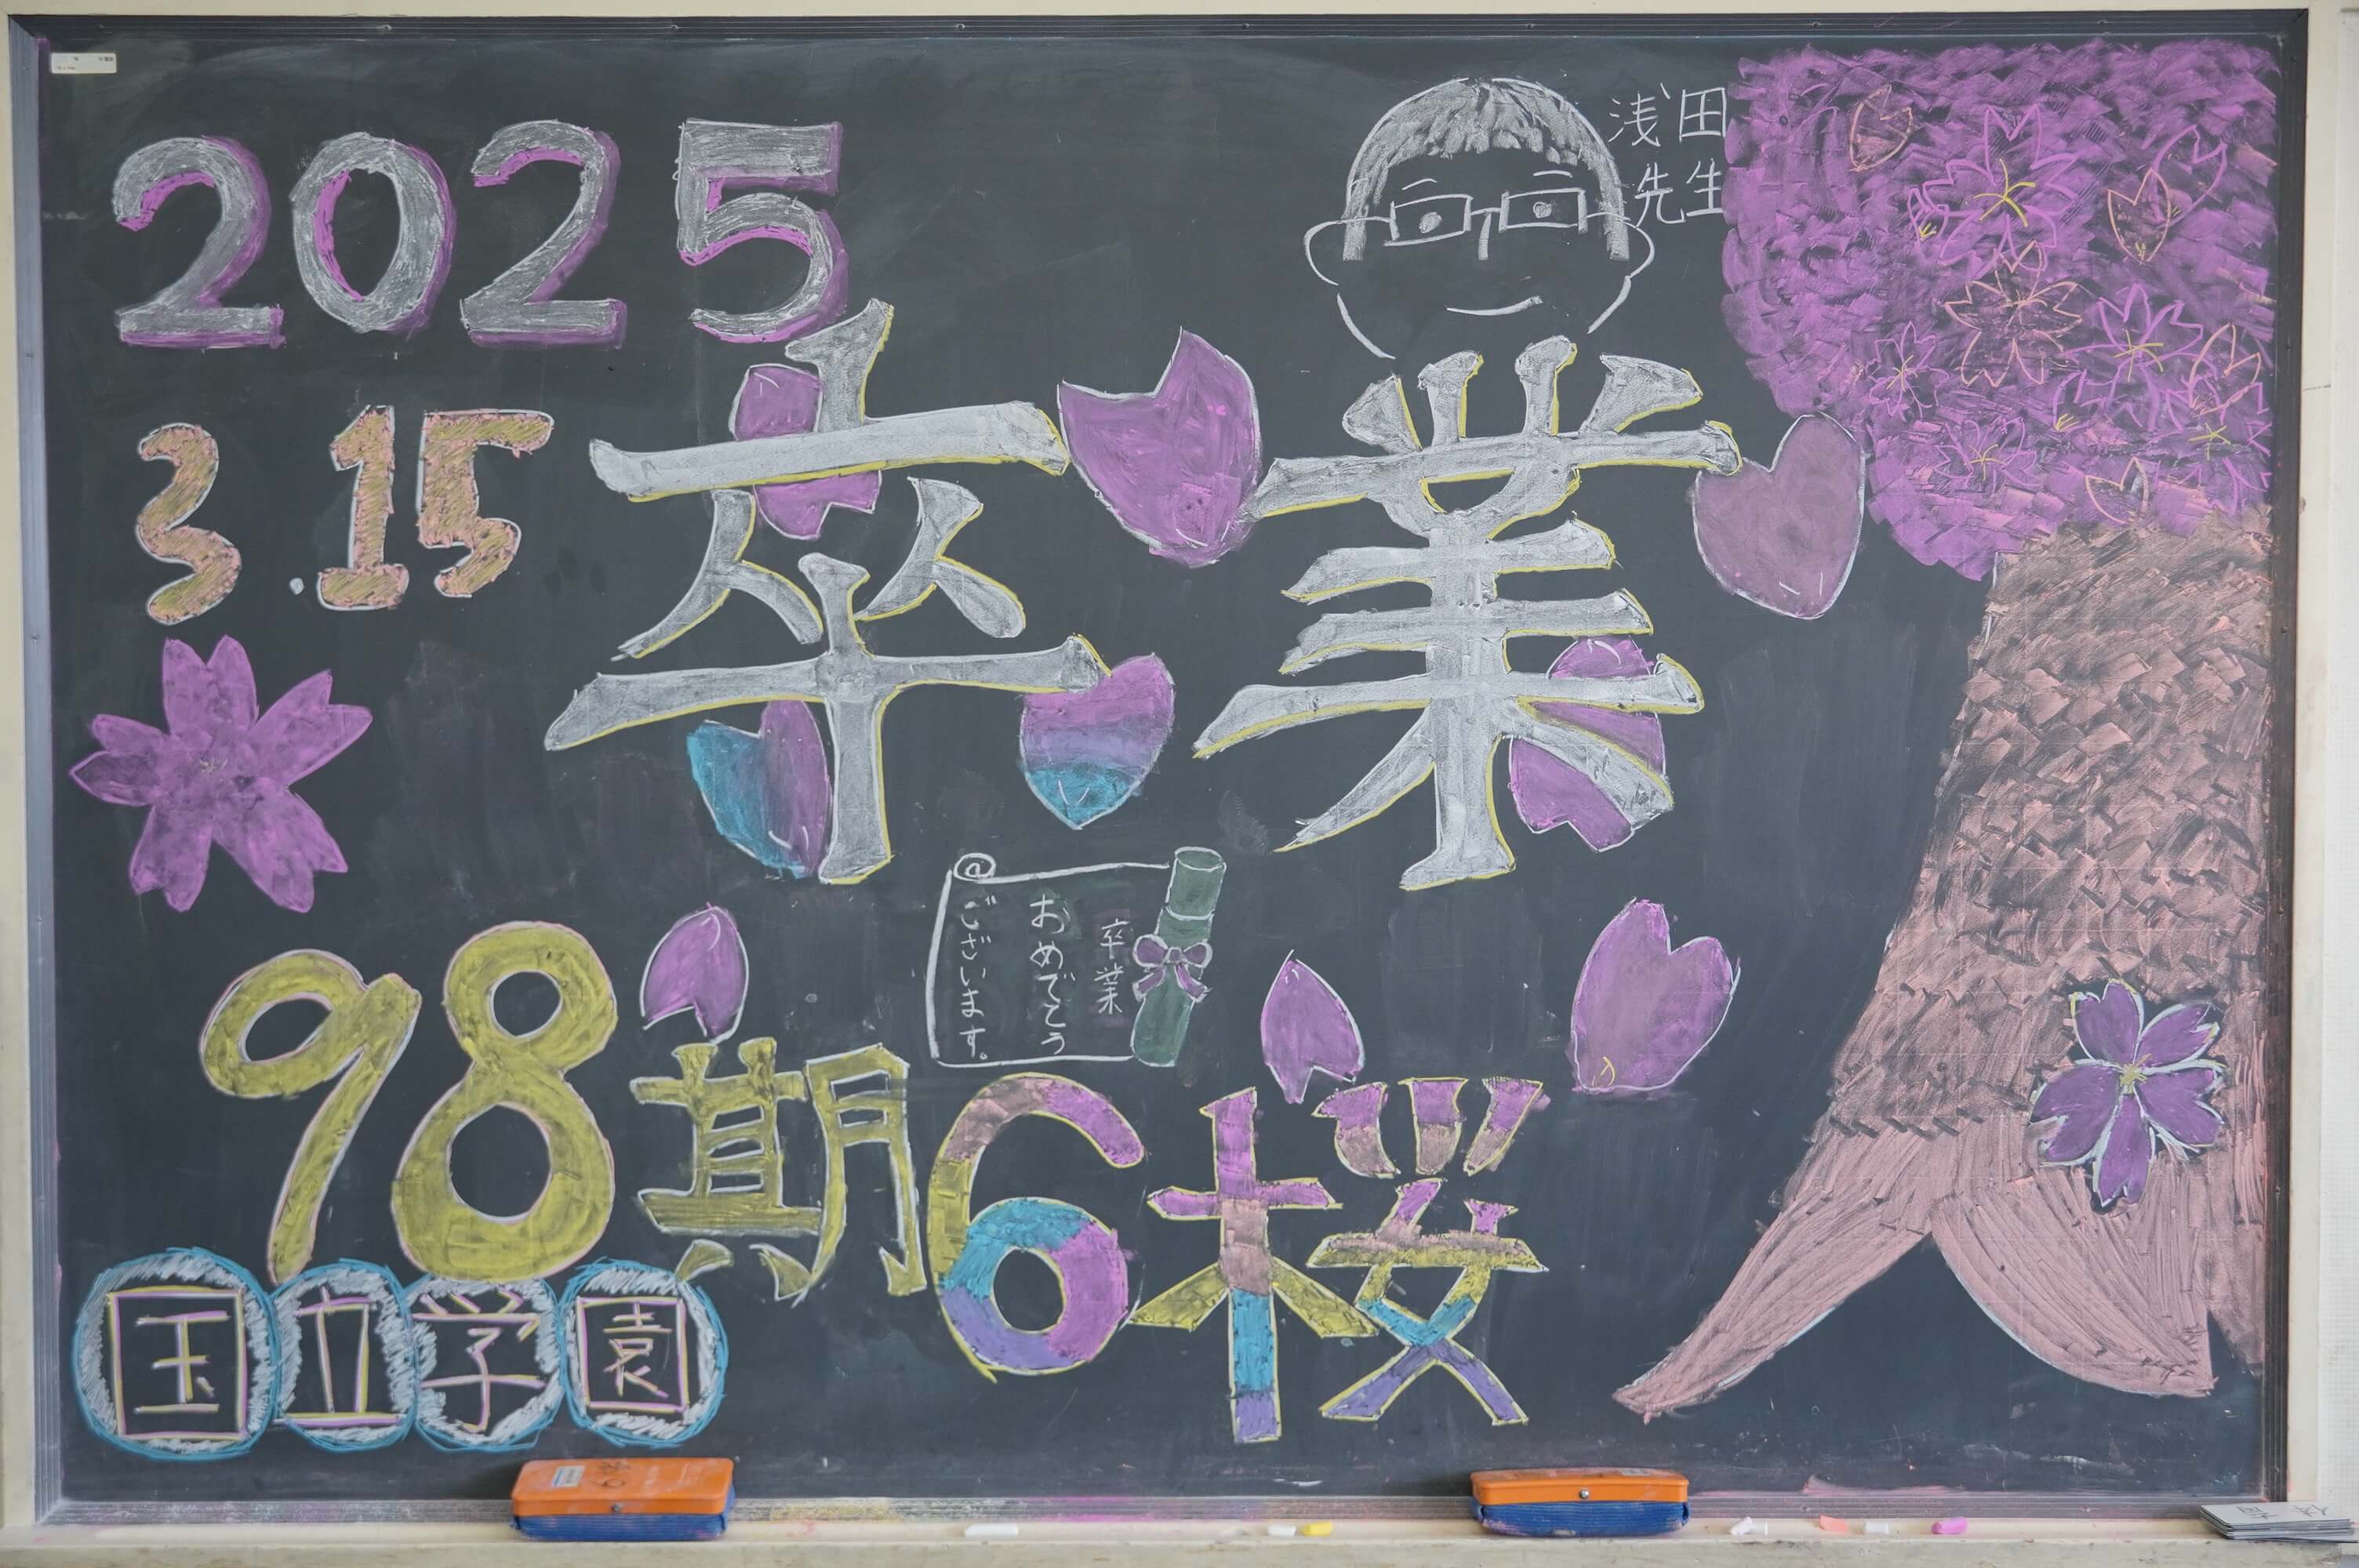 2025
浅田
先生
3.15
卒業
卒業
おめでとう
ございます。
98期
6桜
国立学園